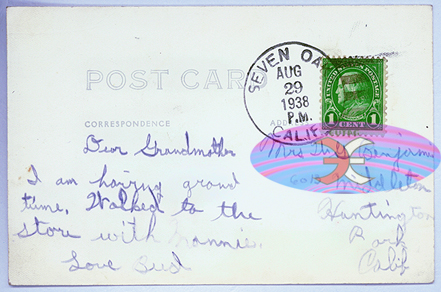 SEVEN OAKS
AUG
29
1938
P.M.
CALIF.
UNITED STATES POSTAGE
1 CENT 1
POST CARD
CORRESPONDENCE
Dear Grandmother
I am having grand
time. Walked to the
store with Mannie.
Love Bud
Mrs
Middleton
Huntington
Park
Calif